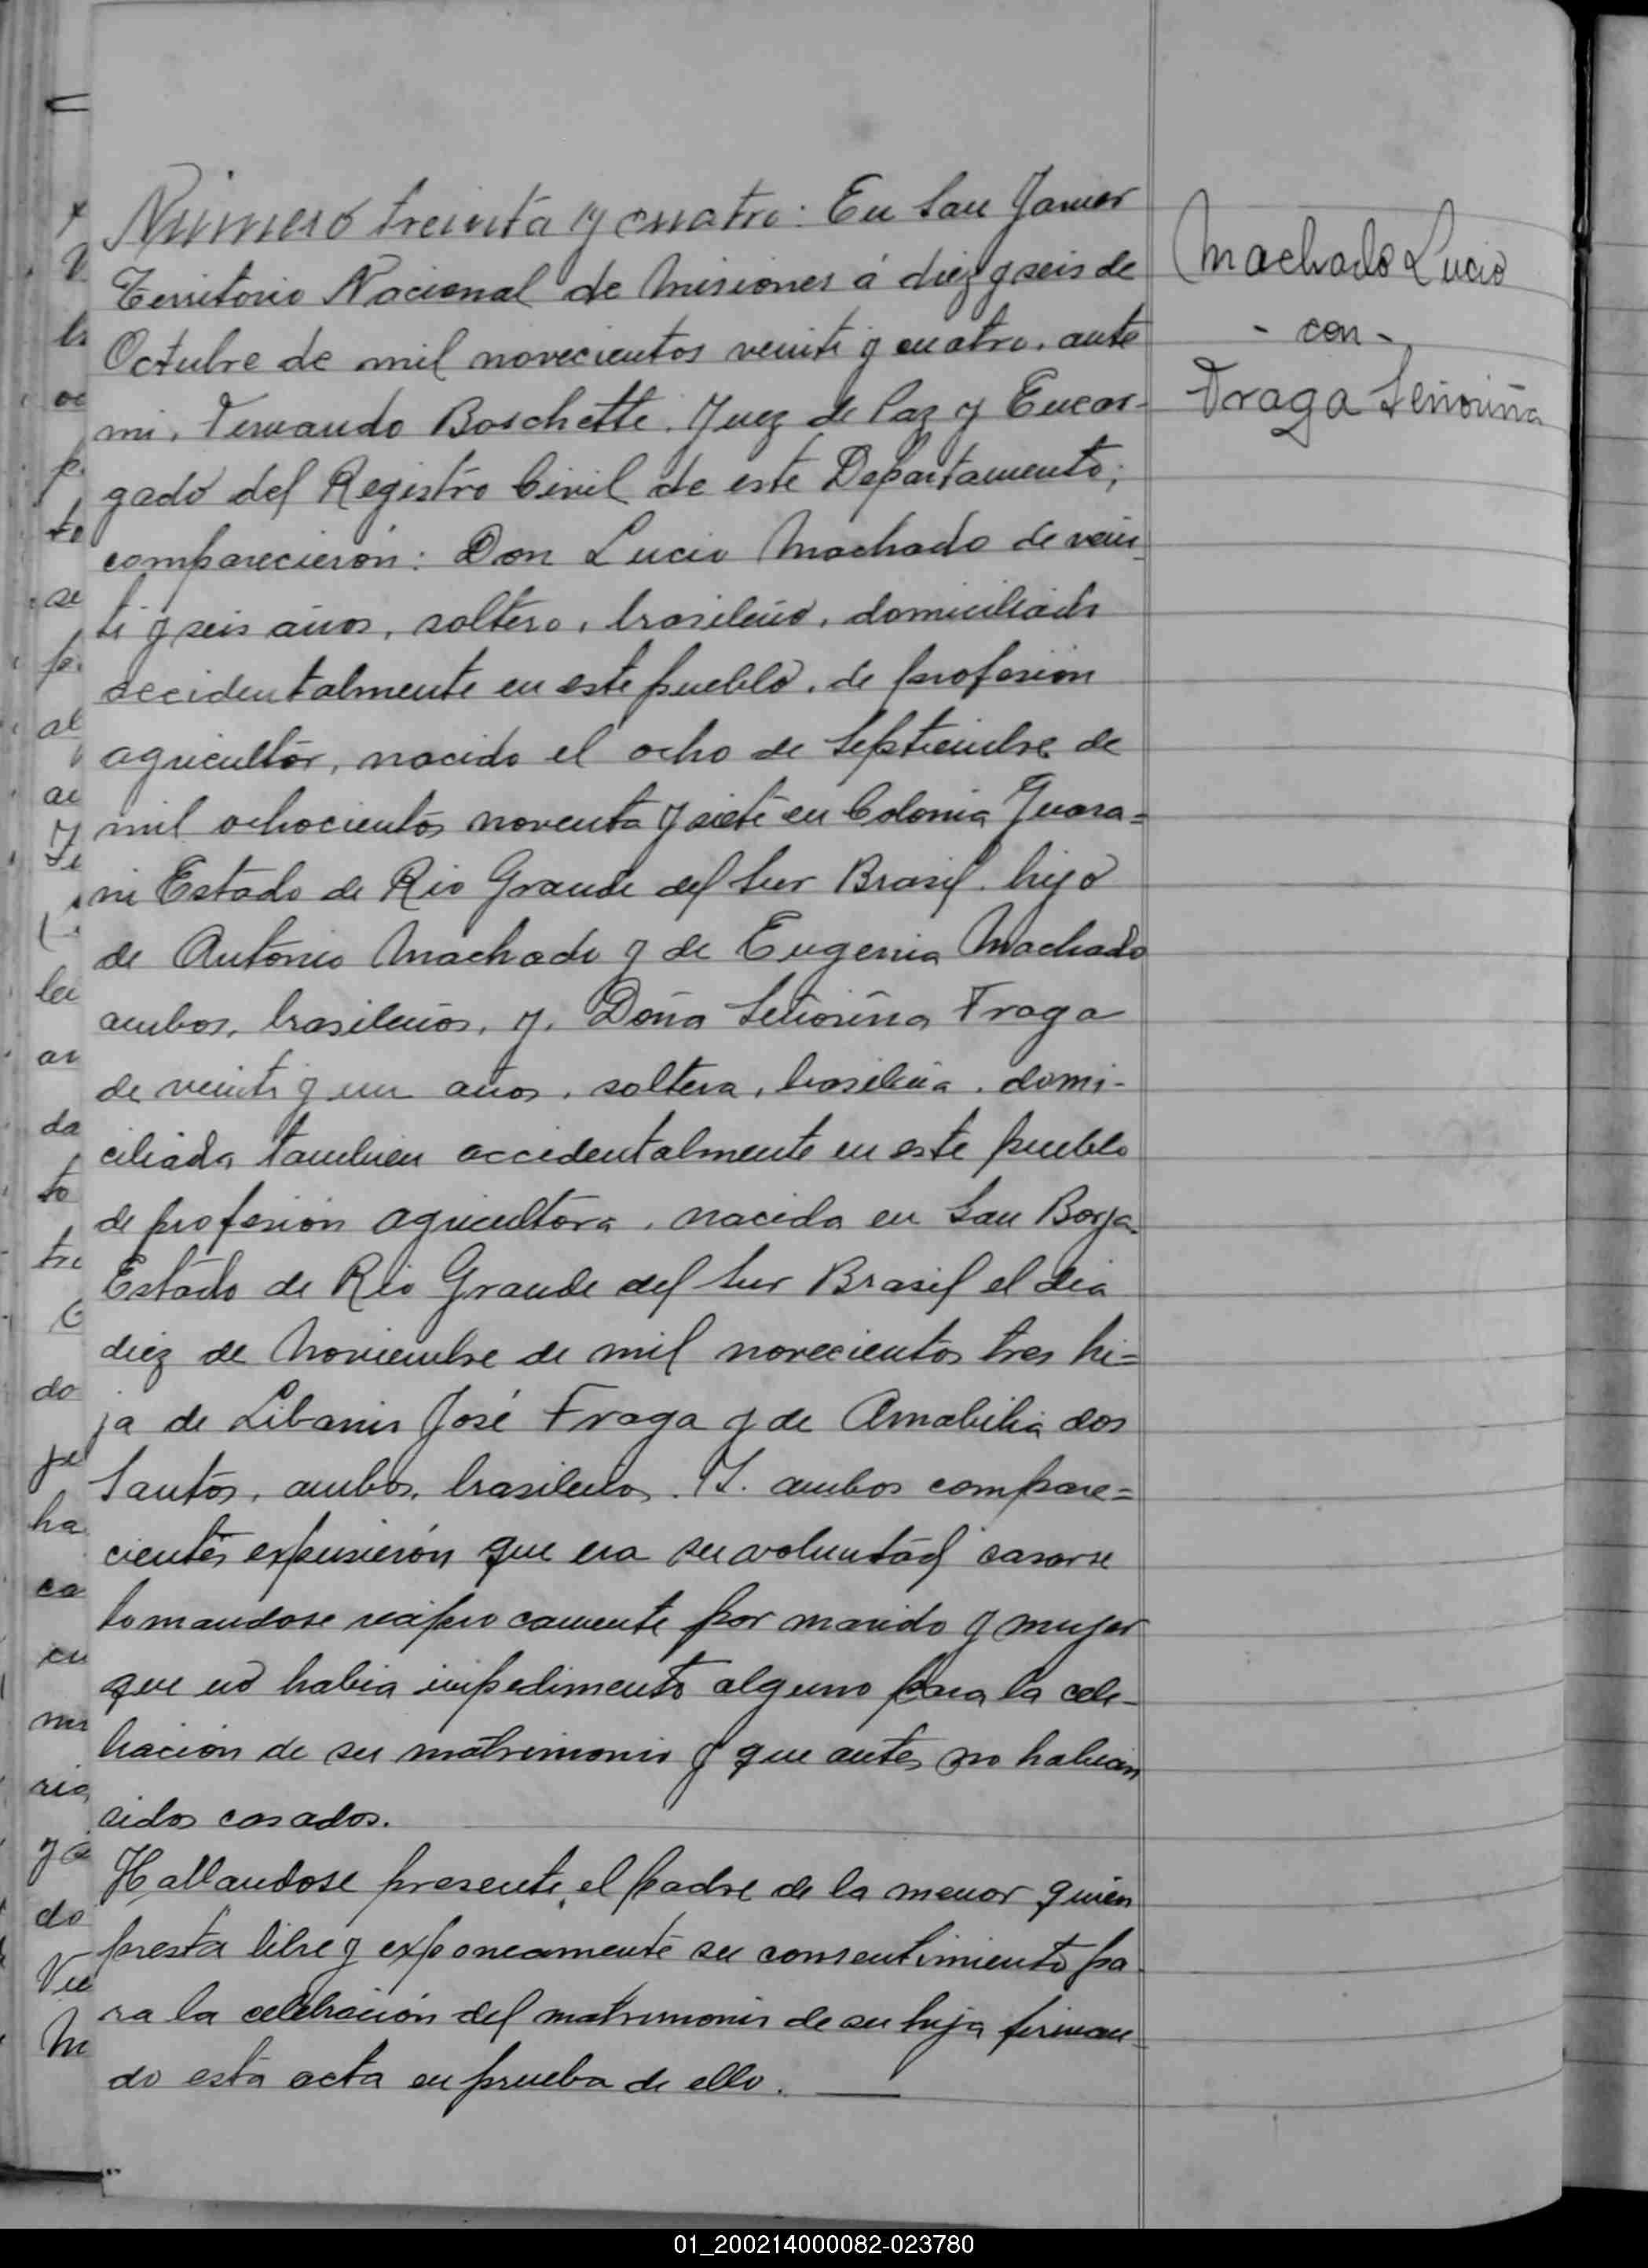 Número treinta y cuatro: En San Javier
Territorio Nacional de Misiones á diez y seis de
Octubre de mil novecientos veinte y cuatro, ante
mi, Fernando Boschette, Juez de Paz y Encar-
gado del Registro Civil de este Departamento;
comparecieron: Don Lucio Machado de vein-
ti y seis años, soltero, brasileño, domiciliado
accidentalmente en este pueblo, de profesión
agricultor, nacido el ocho de Septiembre de
mil ochocientos noventa y siete en Colonia Guara=
ni Estado de Rio Grande del Sur Brasil, hijo
de Antonio Machado y de Eugenia Machado
ambos, brasileños, y, Doña Señoriña Fraga
de veinti y un años, soltera, brasileña, domi-
ciliada tambien accidentalmente en este pueblo
de profesión agricultora, nacida en San Borja
Estado de Rio Grande del Sur Brasil el dia
diez de Noviembre de mil novecientos tres hi=
ja de Libanio José Fraga y de Amabilia dos
Santos, ambos, brasileños. Y. ambos compare=
cientes expusierón que era su voluntad casarse
tomandose reciprocamente por marido y mujer
que no habia impedimento alguno para la cele-
bración de su matrimonio y que antes no habian
sidos casados.
Hallandose presente, el padre de la menor quien
presta libre y exponeamente su consentimiento pa-
ra la celebración del matrimonio de su hija firman-
do esta acta en prueba de ello.
Machado Lucio
- con -
Fraga Señoriña
01_200214000082-023780